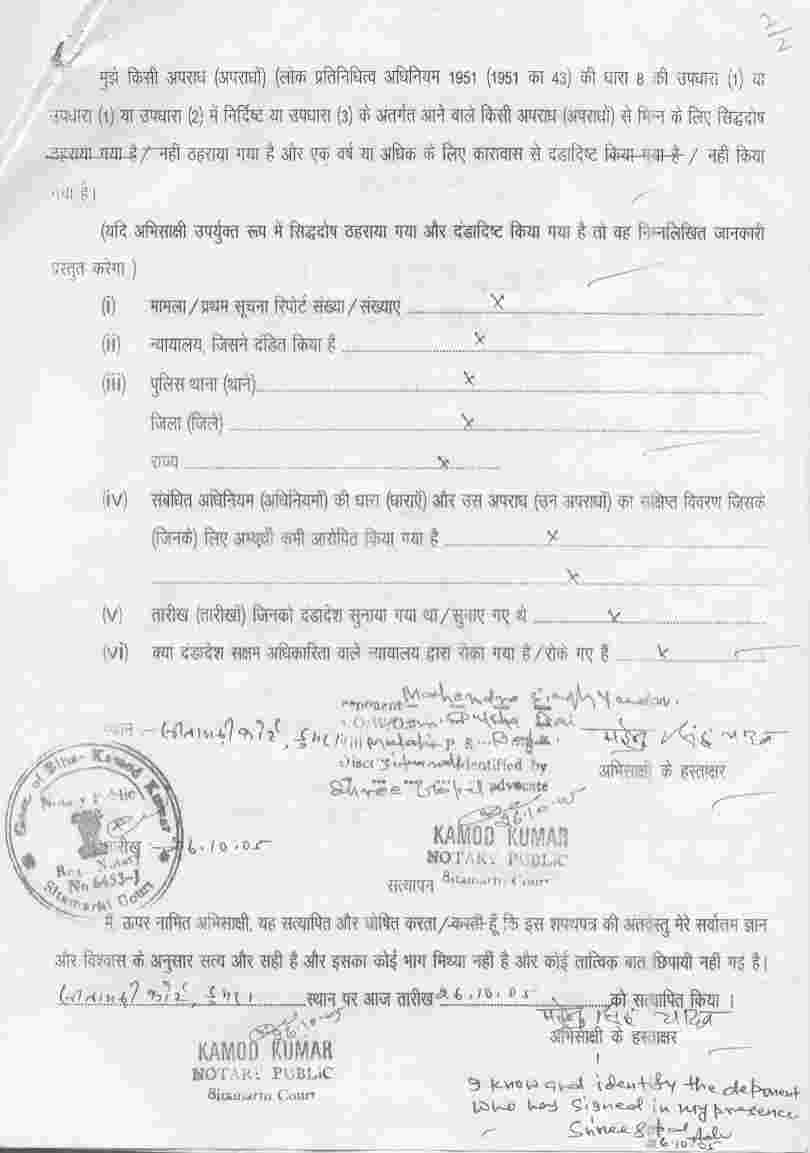 2/2
मुझे किसी अपराध (अपराधों) (लोक प्रतिनिधित्व अधिनियम 1951 (1951 का 43) की धारा 8 की उपधारा (1) या
उपधारा (1) या उपधारा (2) में निर्दिष्ट या उपधारा (3) के अंतर्गत आने वाले किसी अपराध (अपराधों) से भिन्न के लिए सिद्धदोष
ठहराया गया है / नहीं ठहराया गया है और एक वर्ष या अधिक के लिए कारावास से दंडादिष्ट किया गया है / नहीं किया
गया है।
(यदि अभिसाक्षी उपर्युक्त रूप में सिद्धदोष ठहराया गया और दंडादिष्ट किया गया है तो वह निम्नलिखित जानकारी
प्रस्तुत करेगा।)
(i) मामला / प्रथम सूचना रिपोर्ट संख्या / संख्याएं x
(ii) न्यायालय, जिसने दंडित किया है x
(iii) पुलिस थाना (थाने) x
जिला (जिले) x
राज्य x
(iv) संबंधित अधिनियम (अधिनियमों) की धारा (धाराएँ) और उस अपराध (उन अपराधों) का संक्षिप्त विवरण जिसके
(जिनके) लिए अभ्यर्थी कभी आरोपित किया गया है x
x
(v) तारीख (तारीखों) जिनको दंडादेश सुनाया गया था / सुनाए गए थे x
(vi) क्या दंडादेश सक्षम अधिकारिता वाले न्यायालय द्वारा रोका गया है / रोके गए हैं x
Mahendra Singh Yadav.
स्थान :- सीतामढ़ी कोर्ट, डुमरा
महेन्द्र सिंह यादव
identified by
अभिसाक्षी के हस्ताक्षर
advocate
26.10.05
Notary Public
Kamod Kumar
Reg. No 6493
Sitamarhi Court
तारीख :- 26.10.05
KAMOD KUMAR
NOTARY PUBLIC
Sitamarhi Court
सत्यापन
मैं, ऊपर नामित अभिसाक्षी, यह सत्यापित और घोषित करता / करती हूँ कि इस शपथपत्र की अंतर्वस्तु मेरे सर्वोत्तम ज्ञान
और विश्वास के अनुसार सत्य और सही है और इसका कोई भाग मिथ्या नहीं है और कोई तात्विक बात छिपायी नहीं गई है।
सीतामढ़ी कोर्ट, डुमरा स्थान पर आज तारीख 26.10.05 को सत्यापित किया ।
महेन्द्र सिंह यादव
26.10.05
अभिसाक्षी के हस्ताक्षर
KAMOD KUMAR
NOTARY PUBLIC
Sitamarhi Court
I know and identify the deponent
who has signed in my presence
26.10.05